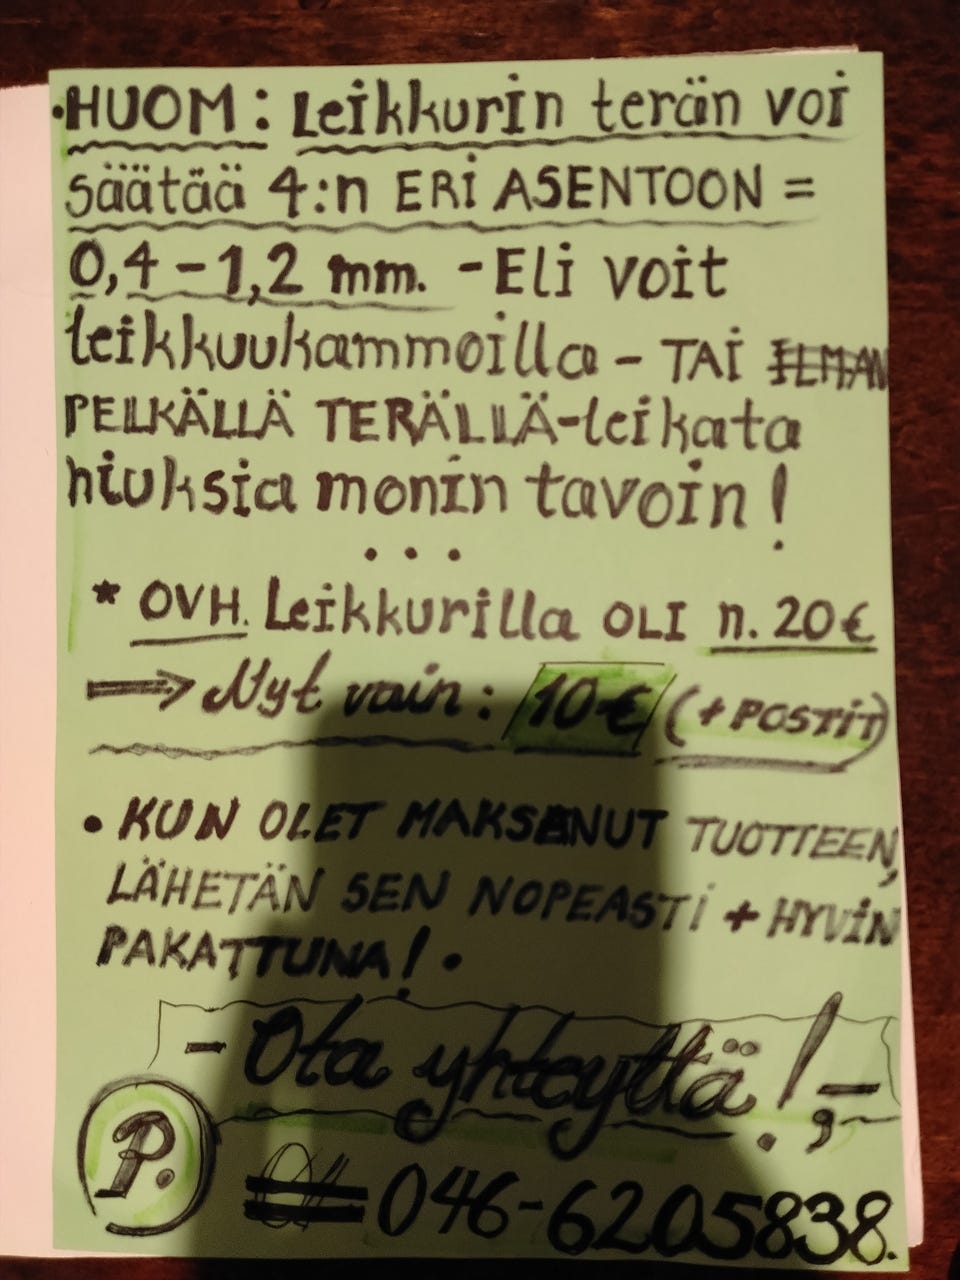 •HUOM: Leikkurin terän voi
säätää 4:n ERI ASENTOON =
0,4 – 1,2 mm. - Eli voit
leikkuukammoilla – TAI ILMAN
PELKÄLLÄ TERÄLLÄ-leikata
hiuksia monin tavoin!
• • •
* OVH. Leikkurilla OLI n. 20€
⟹ Nyt vain: 10€ (+POSTIT)
• KUN OLET MAKSANUT TUOTTEEN,
LÄHETÄN SEN NOPEASTI + HYVIN
PAKATTUNA! •
- Ota yhteyttä! ;-
P.
046-6205838.